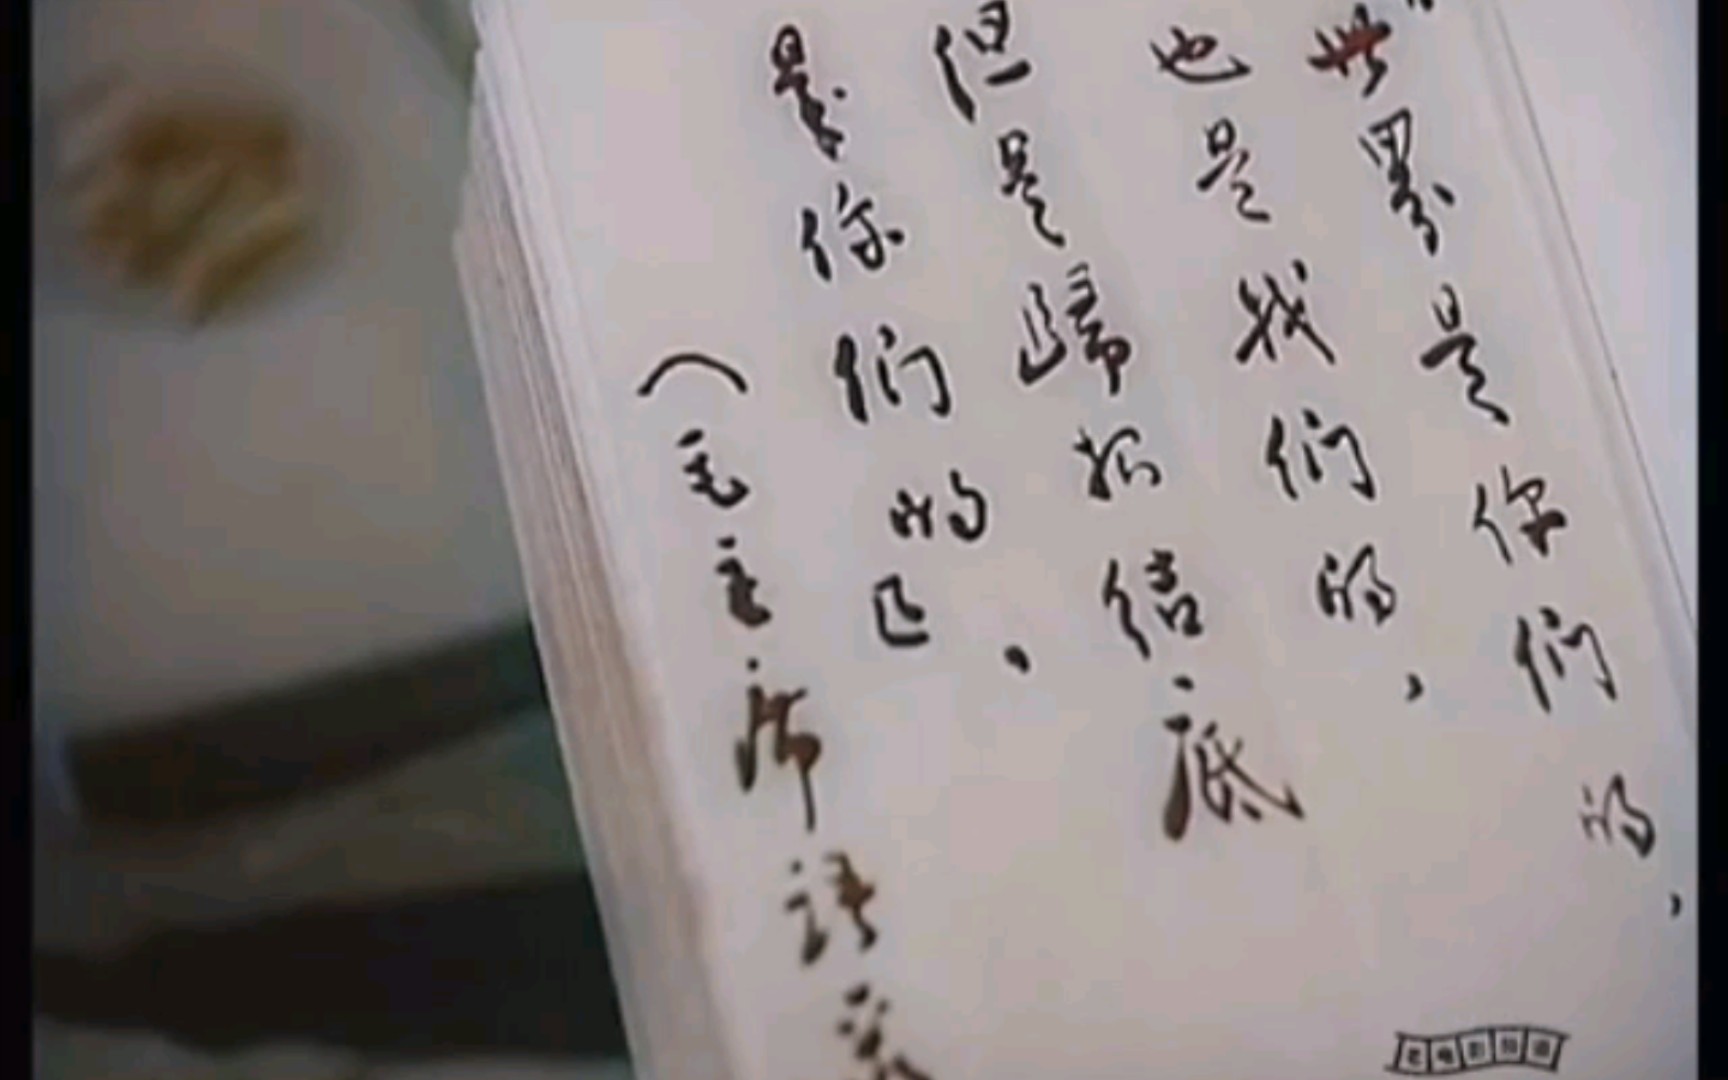 "世界是你们的，
也是我们的，
但是歸根结底
是你们的。"
（毛主席语录